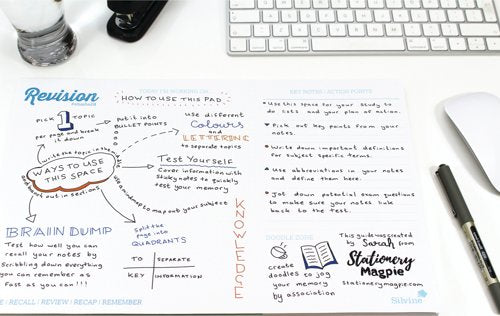 Revision
TODAY I'M WORKING ON...
HOW TO USE THIS PAD
PICK 1 TOPIC
per page and break
it down
put it into
BULLET POINTS
use different
Colours
and
LETTERING
to separate topics
write the topic in the middle
WAYS TO USE
THIS SPACE
and branch out in sections
Test Yourself
Cover information with
sticky notes to quickly
test your memory
use a roadmap to map out your subject
KNOWLEDGE
BRAIN DUMP
Test how well you can
recall your notes by
scribbling down everything
you can remember as
fast as you can!!!
Split the
page into
QUADRANTS
TO SEPARATE
KEY INFORMATION
/ RECALL / REVIEW / RECAP / REMEMBER
KEY NOTES / ACTION POINTS
Use this space for your study to
do lists and your plan of action.
Pick out key points from your
notes.
Write down important definitions
for subject specific terms.
Use abbreviations in your notes
and define them here.
Jot down potential exam questions
to make sure your notes link
back to the test.
DOODLE ZONE
create
doodles to jog
your memory
by association
This guide was created
by Sarah from
Stationery
Magpie
stationerymagpie.com
Silvine